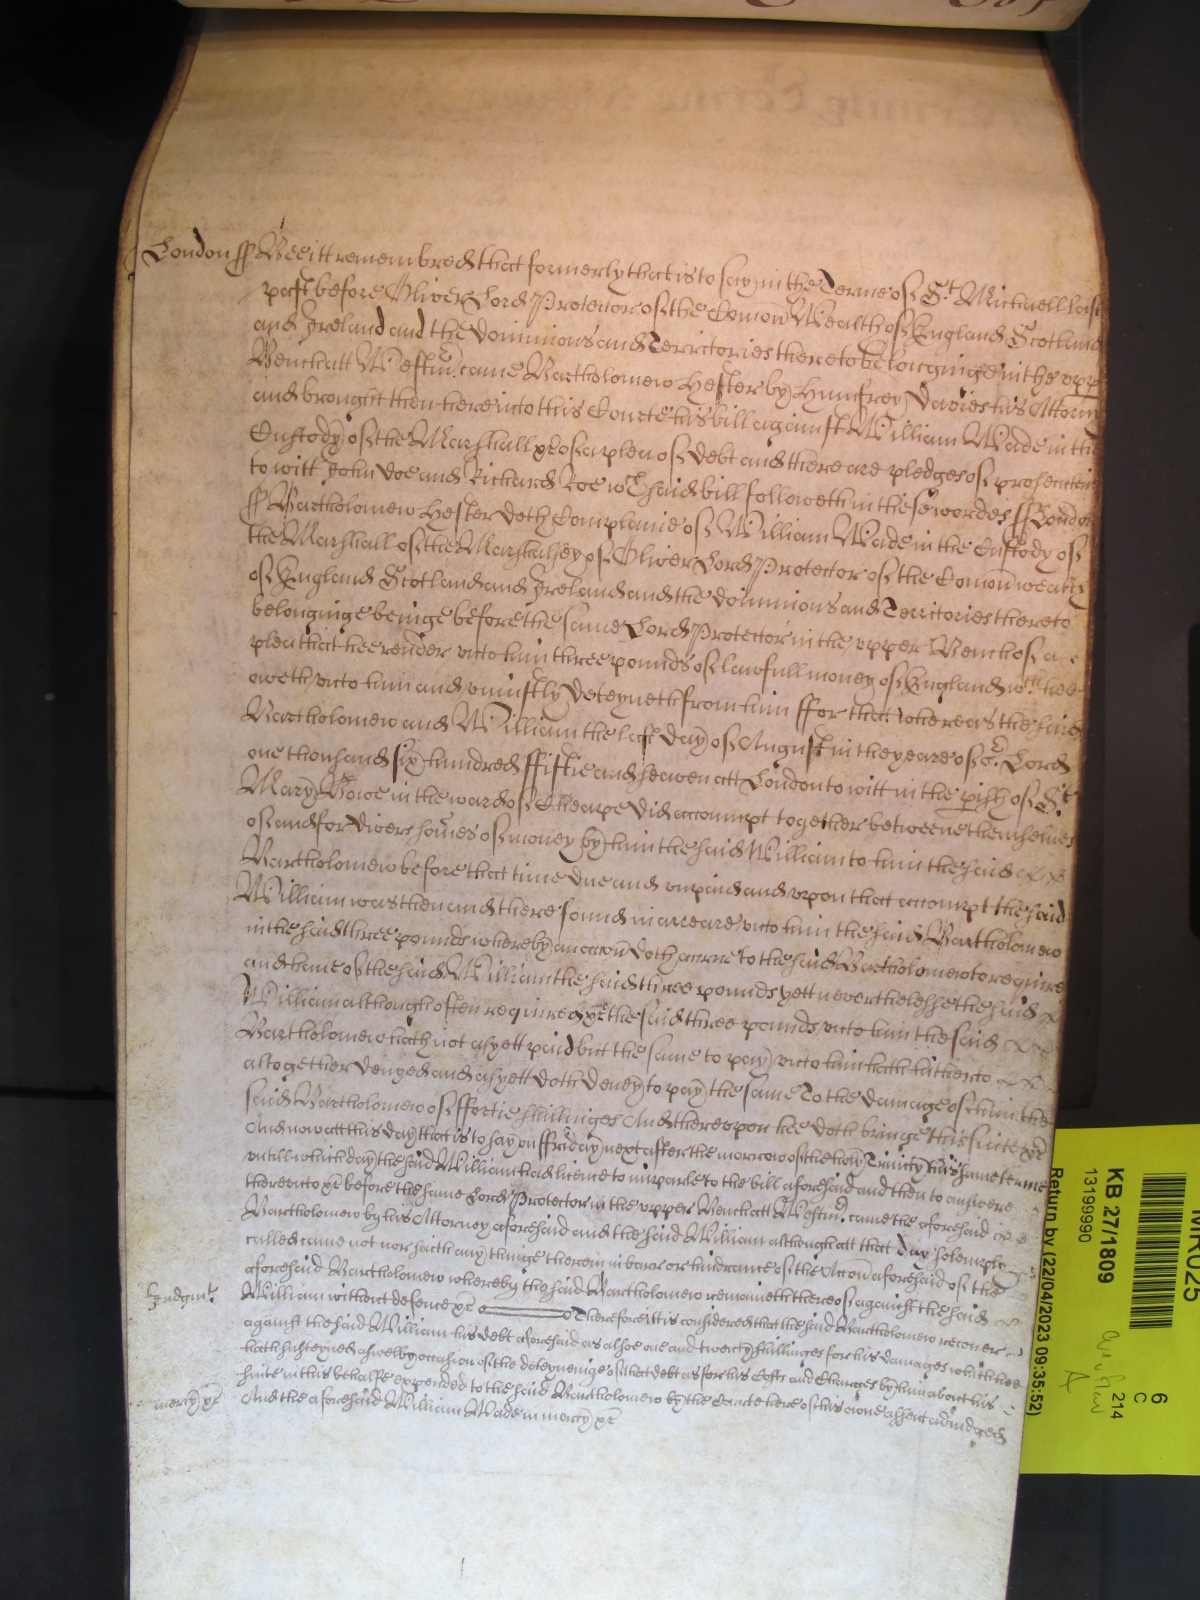 London ss Bee itt remembred that formerly that is to say in the Terme of St. Michaell last
past before Oliver Lord Protector of the Comon Wealth of England Scotland
and Ireland and the dominions and Territories thereto belonginge in the upp
Bench att Westmr. came Bartholomew Hester by Humfrey Davies his Attorny
and brought then here into this Courte his bill against William Wade in the
Custody of the Marshall &c of a plea of debt and there are pledges of prosecutein
to witt John Doe and Richard Roe wch said bill followeth in these wordes ss London
ss Bartholomew Hester doth Complaine of William Wade in the Custody of
the Marshall of the Marshalsey of Oliver Lord Protector of the Comonwealth
of England Scotland and Ireland and the dominions and Territories thereto
belonginge beinge before the same Lord Protector in the upper Bench of a
plea that hee render unto him three pounds of lawfull money of England wch hee
oweth unto him and uniustly deteyneth from him ffor that whereas the said
Bartholomew and William the last day of August in the yeare of or. Lord
one thousand six hundred ffiftie and seaven att London to witt in the pish of St.
Mary Bowe in the ward of Cheape did accompt together betweene themselves
of and for divers somes of money by him the said William to him the said
Bartholomew before that time due and unpaid and upon that accompt the said
William was then and there found in arreare unto him the said Bartholomew
in the said three pounds whereby an accon doth accrue to the said Bartholomew to require
and have of the said William the said three pounds yett neverthelesse the said
William although often required &c the said three pounds unto him the said
Bartholomew hath not as yett paid but the same to pay unto him hath hitherto
altogether denyed and as yett doth deney to pay the same To the damage of him the
said Bartholomew of ffortie shillinges And thereupon hee doth bringe this suite &c
And now att this day that is to say on ffriday next after the morrow of the holy Trinity this same terme
untill which day the said William had licence to imparle to the bill aforesaid and then to answere
thereunto &c before the same Lord Protector in the upper Bench att Westmr. came the aforesaid
Bartholomew by his Attorney aforesaid and the said William although att that day solemply
called came not nor saith any thinge therein in barr or hindrance of the Accon aforesaid of the
aforesaid Bartholomew whereby the said Bartholomew remaineth thereof against the said
Iudgmt. William without defence &c Therefore itt is considered that the said Bartholomew recover
against the said William his debt aforesaid as alsoe one and twenty shillinges for his damages which hee
hath susteyned aswell by occasion of the deteyninge of that debt as for his Costs and Charges by him about his
suite in this behalfe expended to the said Bartholomew by the Courte here of his owne assent adiudged
mercy &c And the aforesaid William Wade in mercy &c
MR025
KB 27/1809
13199990
Return by (22/04/2023 09:35:52)
6
C
214
A